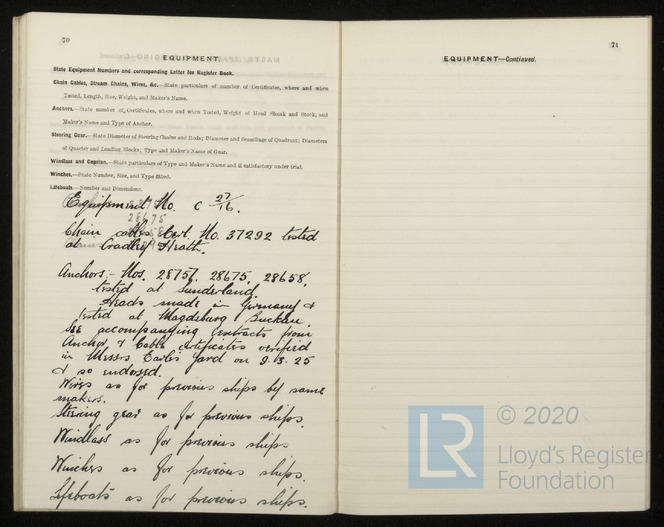 70
EQUIPMENT.
State Equipment Numbers and corresponding Letter for Register Book.
Chain Cables, Stream Chains, Wires, &c.—State particulars of number of Certificates, where and when
Tested, Length, Size, Weight, and Maker's Name.
Anchors.—State number of Certificates, where and when Tested, Weight of Head Shank and Stock, and
Maker's Name and Type of Anchor.
Steering Gear.—State Diameter of Steering Chains and Rods; Diameter and Scantlings of Quadrant; Diameters
of Quarter and Leading Blocks; Type and Maker's Name of Gear.
Windlass and Capstan.—State particulars of Type and Maker's Name and if satisfactory under trial.
Winches.—State Number, Size, and Type fitted.
Lifeboats.—Number and Dimensions.
Equipment No. C 27/16.
28675
Chain cables Cert. No. 37292 tested
at Cradley Heath.
Anchors:- Nos. 28757. 28675. 28658.
tested at Sunderland.
Heads made in Germany &
tested at Magdeburg Buckau.
See accompanying extracts from
Anchor & Cable certificates verified
in Messrs Earle's Yard on 9.3.25
& so endorsed.
Wires as for previous ships by same
makers.
Steering gear as for previous ships.
Windlass as for previous ships
Winches as for previous ships.
Lifeboats as for previous ships.
71
EQUIPMENT—Continued.
LR © 2020
Lloyd's Register
Foundation